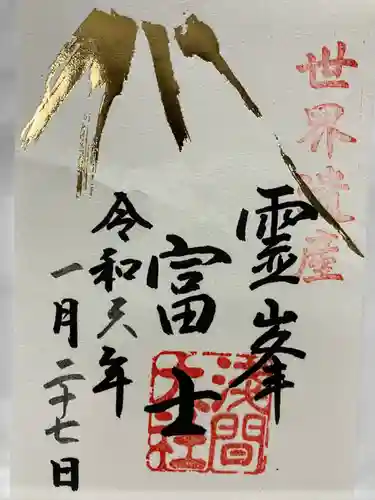 世界遺産
霊峯
富士
令和六年
一月二十七日
淺間
大社